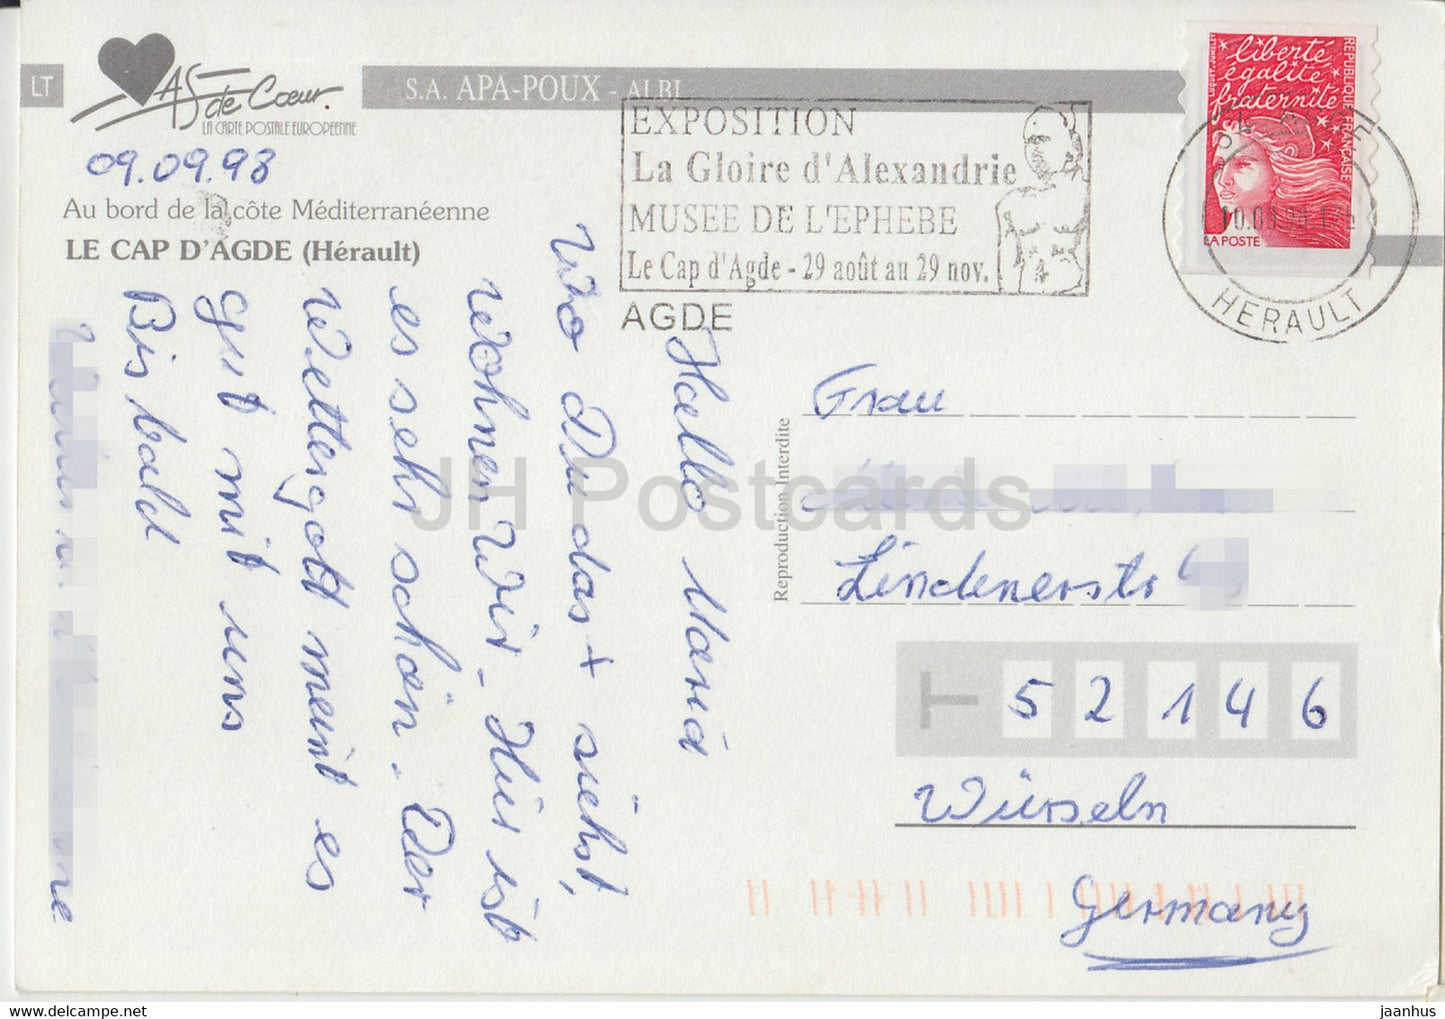 LT
AS de Cœur.
LA CARTE POSTALE EUROPÉENNE
S.A. APA-POUX - ALBI
09.09.98
Au bord de la côte Méditerranéenne
LE CAP D'AGDE (Hérault)
EXPOSITION
La Gloire d'Alexandrie
MUSEE DE L'EPHEBE
Le Cap d'Agde - 29 août au 29 nov.
AGDE
liberté
égalité
fraternité
RÉPUBLIQUE FRANÇAISE
LA POSTE
HERAULT
Hallo Maria
Wo Du das + siehst,
wohnen Wir. Hier ist
es sehr schön. Der
Wettergott meint es
gut mit uns
Bis bald
Reproduction Interdite
Frau
Lindenerstr
T 52146
Würseln
Germany
JH Postcards
jaanhus @ www.delcampe.net